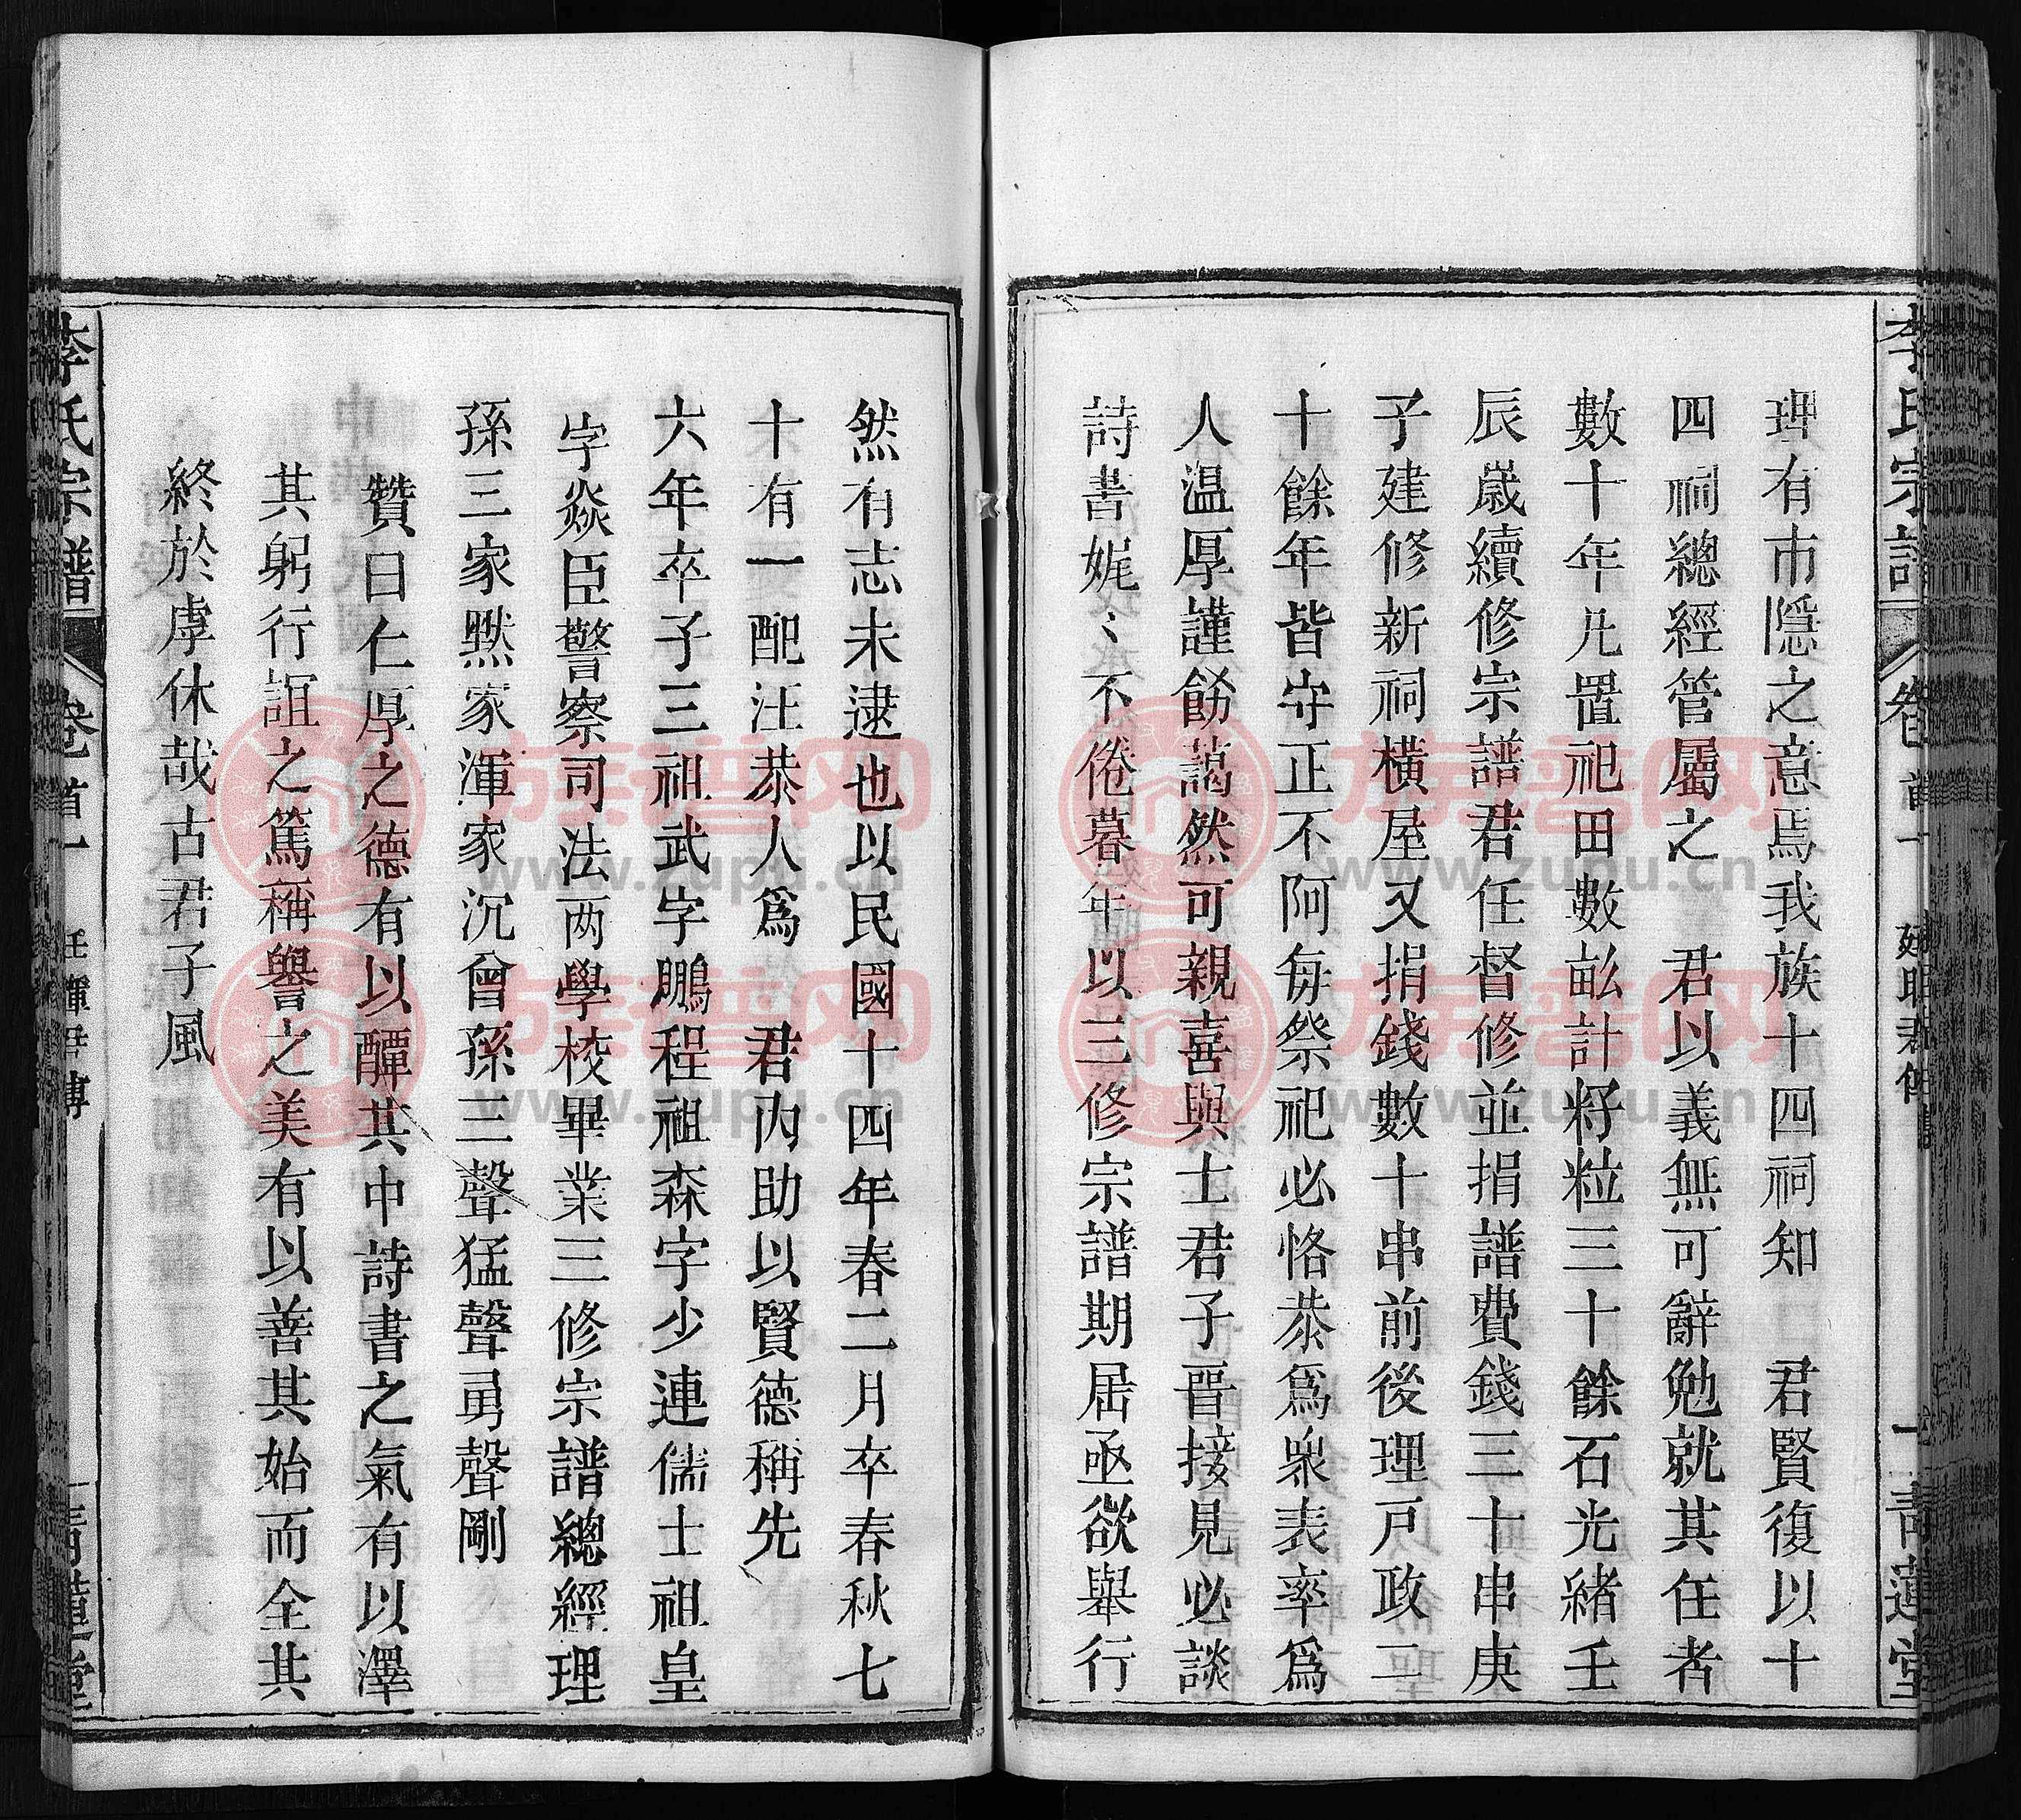 李氏宗譜 卷首一 廷昭君傳 青蓮堂
理有市隱之意焉我族十四祠知 君賢復以十
四祠總經管屬之 君以義無可辭勉就其任者
數十年凡置祀田數畝計籽粒三十餘石光緒壬
辰歲續修宗譜君任督修並捐譜費錢三十串庚
子建修新祠橫屋又捐錢數十串前後理戶政二
十餘年皆守正不阿每祭祀必恪恭爲衆表率爲
人温厚謹飭藹然可親喜與士君子晉接見必談
詩書娓〻不倦暮年以三修宗譜期屆亟欲舉行
然有志未逮也以民國十四年春二月卒春秋七
十有一配汪恭人爲 君內助以賢德稱先
六年卒子三祖武字鵬程祖森字少連儒士祖皇
字焱臣警察司法两學校畢業三修宗譜總經理
孫三家熙家渾家沉曾孫三聲猛聲勇聲剛
贊曰仁厚之德有以醰其中詩書之氣有以澤
其躬行誼之篤稱譽之美有以善其始而全其
終於虖休哉古君子風
李氏宗譜 卷首一 廷輝君傳 青蓮堂
族譜网
www.zupu.cn
族譜网
www.zupu.cn
族譜网
www.zupu.cn
族譜网
www.zupu.cn